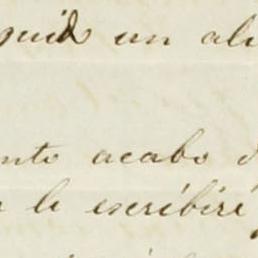 un ali
nto acabo d
le escribiré